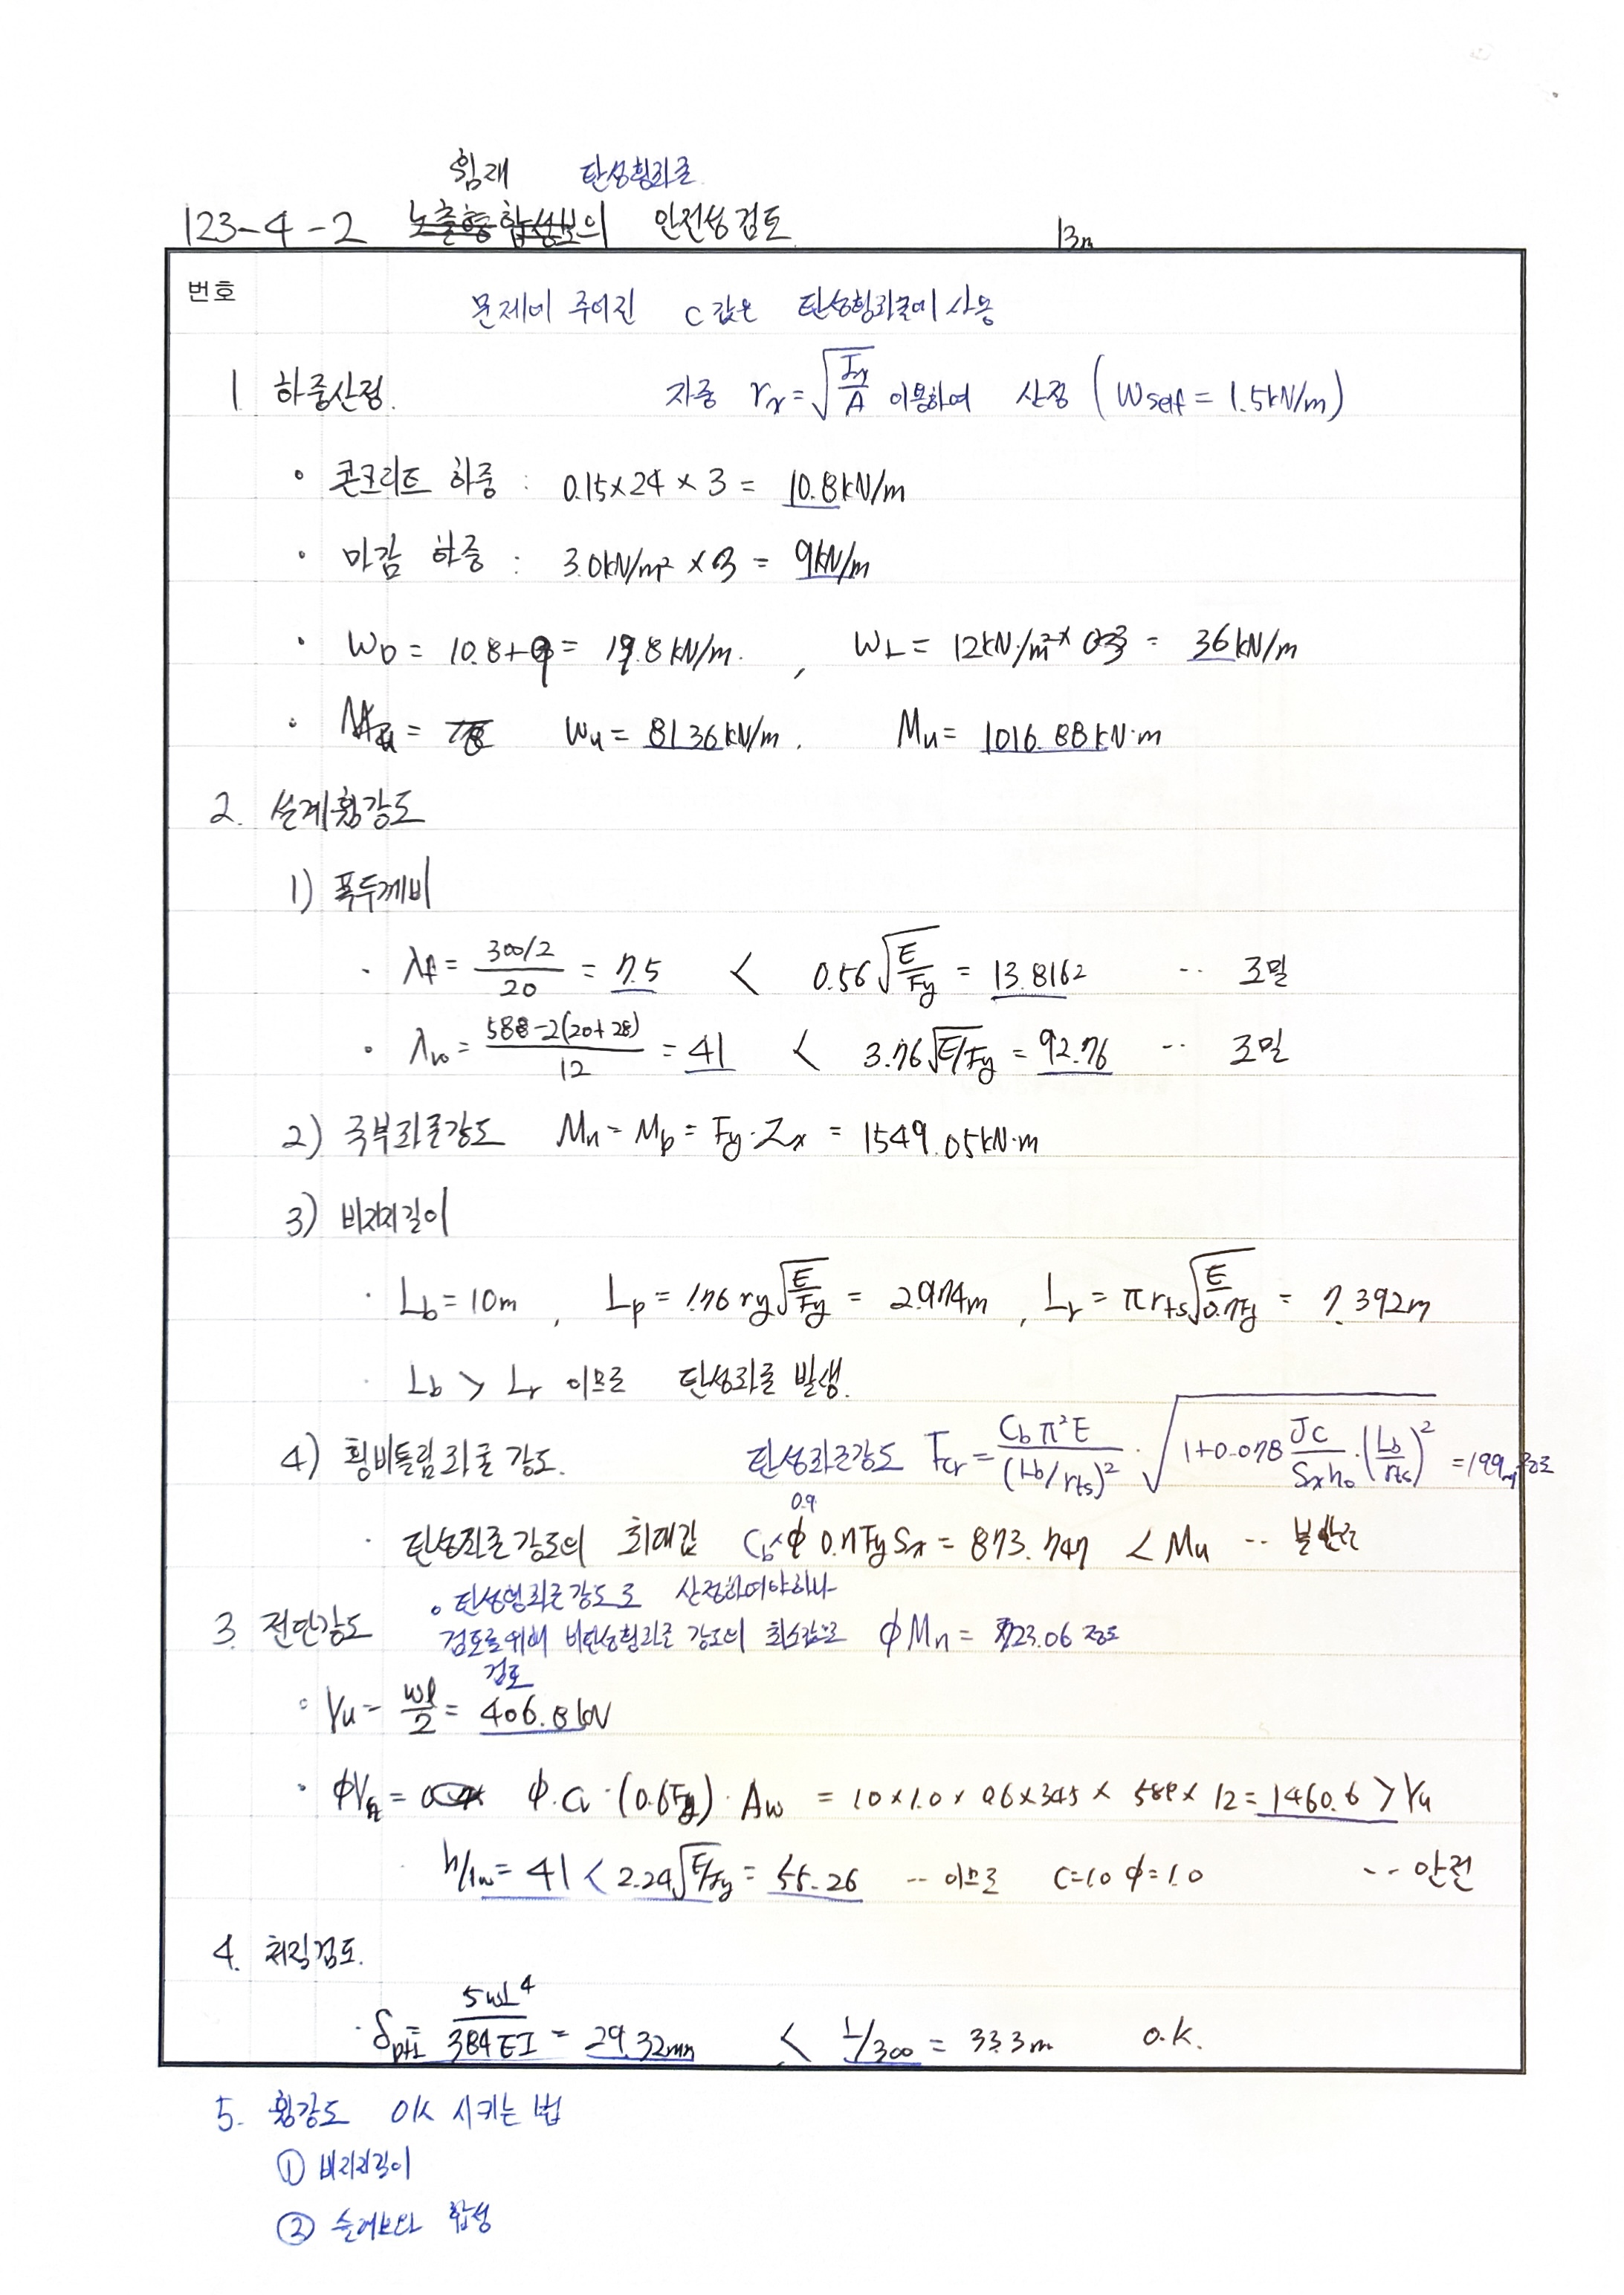 휨재 탄성횡좌굴
123-4-2 노출형 합성보의 안전성검토 13m
번호
문제에 주어진 C값은 탄성횡좌굴에 사용
1 하중산정. 자중 rx = √(Ix/A) 이용하여 산정 (Wself = 1.5kN/m)
• 콘크리트 하중 : 0.15×24×3 = 10.8kN/m
• 마감 하중 : 3.0kN/m² × 3 = 9kN/m
• WD = 10.8+9 = 19.8kN/m. , WL = 12kN/m² × 3 = 36kN/m
• Wu = 81.36kN/m. Mu = 1016.88kN·m
2. 설계휨강도
1) 폭두께비
· λf = (300/2)/20 = 7.5 < 0.56√(E/Fy) = 13.8162 ·· 조밀
· λw = (588-2(20+28))/12 = 41 < 3.76√(E/Fy) = 92.76 ·· 조밀
2) 국부좌굴강도 Mn = Mp = Fy·Zx = 1549.05kN·m
3) 비지지길이
· Lb = 10m , Lp = 1.76 ry√(E/Fy) = 2.974m , Lr = π rts√(E/0.7Fy) = 7.392m
· Lb > Lr 이므로 탄성좌굴 발생.
4) 횡비틀림좌굴 강도. 탄성좌굴강도 Fcr = Cb π²E/(Lb/rts)² · √(1+0.078 Jc/(Sx ho)·(Lb/rts)²) = 199 정도
0.9
· 탄성좌굴강도의 최대값 Cb×φ 0.7FySx = 873.747 < Mu ·· 불안전
• 탄성횡좌굴강도로 산정하여야하나
3. 전단강도 검토를위해 비탄성횡좌굴 강도의 최소값으로 φMn = 723.06 정도
검토
• Vu = wl/2 = 406.8kN
• φVn = φ·Cv·(0.6Fy)·Aw = 1.0×1.0×0.6×345×588×12 = 1460.6 > Vu
· h/tw = 41 < 2.24√(E/Fy) = 55.26 ·· 이므로 C=1.0 φ=1.0 ·· 안전
4. 처짐검토.
· δD+L = 5wL⁴/384EI = 29.32mm < L/300 = 33.3m O.K.
5. 휨강도 OK 시키는 법
① 비지지길이
② 슬래브와 합성